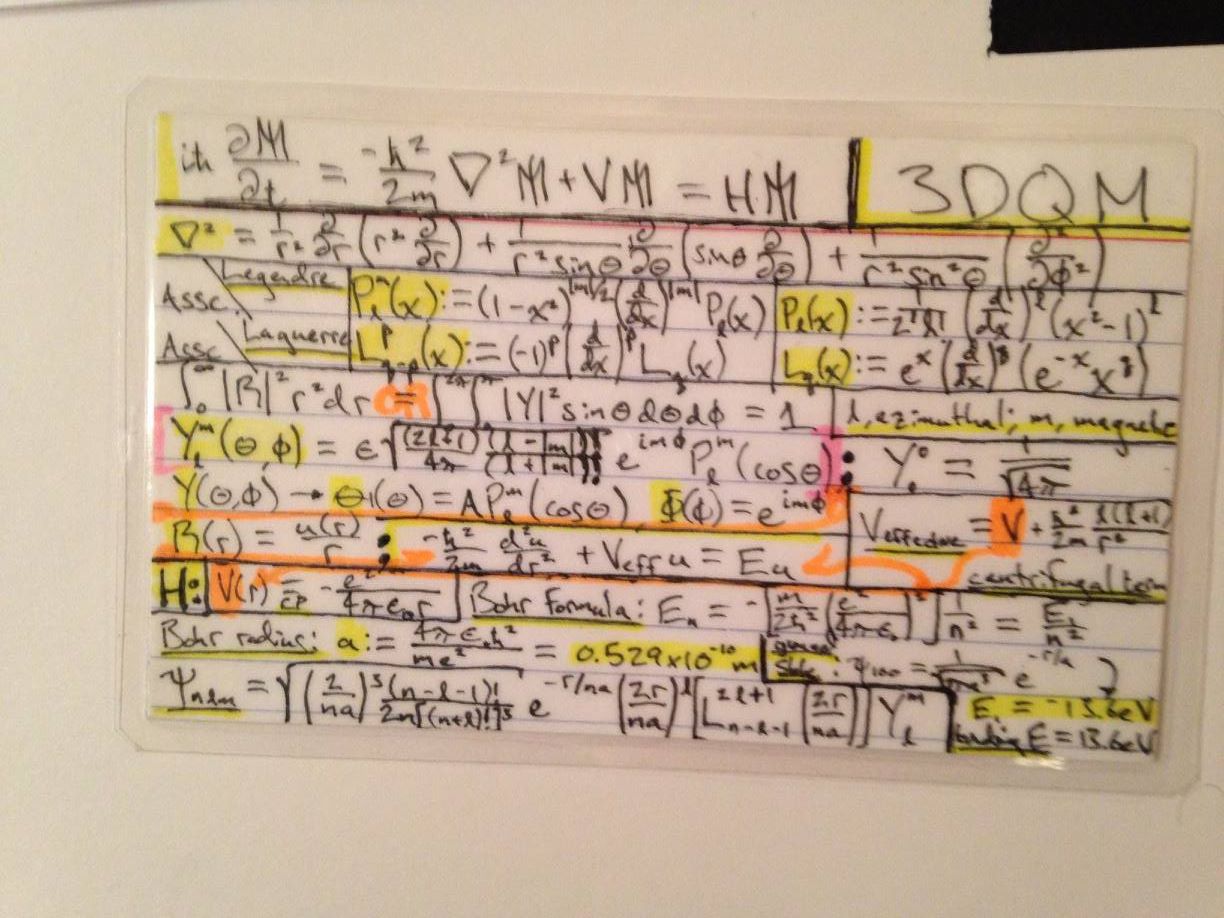 iħ ∂Ψ/∂t = -ħ²/2m ∇²Ψ + VΨ = HΨ
3DQM
∇² = 1/r² ∂/∂r (r² ∂/∂r) + 1/(r² sinθ) ∂/∂θ (sinθ ∂/∂θ) + 1/(r² sin²θ) (∂²/∂φ²)
Assc. Legendre P_l^m(x) := (1-x²)^(|m|/2) (d/dx)^|m| P_l(x)
P_l(x) := 1/(2^l l!) (d/dx)^l (x²-1)^l
Assc Laguerre L_{q-p}^p(x) := (-1)^p (d/dx)^p L_q(x)
L_q(x) := e^x (d/dx)^q (e^-x x^q)
∫₀^∞ |R|² r² dr = ∫^2π ∫^π |Y|² sinθ dθ dφ = 1
l, azimuthal; m, magnetic
Y_l^m(θ,φ) = ε √((2l+1)/4π (l-|m|)!/(l+|m|)!) e^(imφ) P_l^m(cosθ) : Y_0^0 = 1/√4π
Y(θ,φ) → Θ(θ) = A P_l^m(cosθ), Φ(φ) = e^(imφ)
V effective = V + ħ²/2m l(l+1)/r²
centrifugal term
R(r) = u(r)/r : -ħ²/2m d²u/dr² + Veff u = Eu
H: V(r) = -e²/4πε₀ 1/r
Bohr formula: E_n = -[m/2ħ² (e²/4πε₀)²] 1/n² = E₁/n²
Bohr radius: a := 4πε₀ħ²/me² = 0.529x10⁻¹⁰ m
ground state: ψ₁₀₀ = 1/√πa³ e^(-r/a)
ψ_nlm = √((2/na)³ (n-l-1)!/2n[(n+l)!]³) e^(-r/na) (2r/na)^l [L_{n-l-1}^{2l+1} (2r/na)] Y_l^m
E₁ = -13.6eV
binding E = 13.6eV